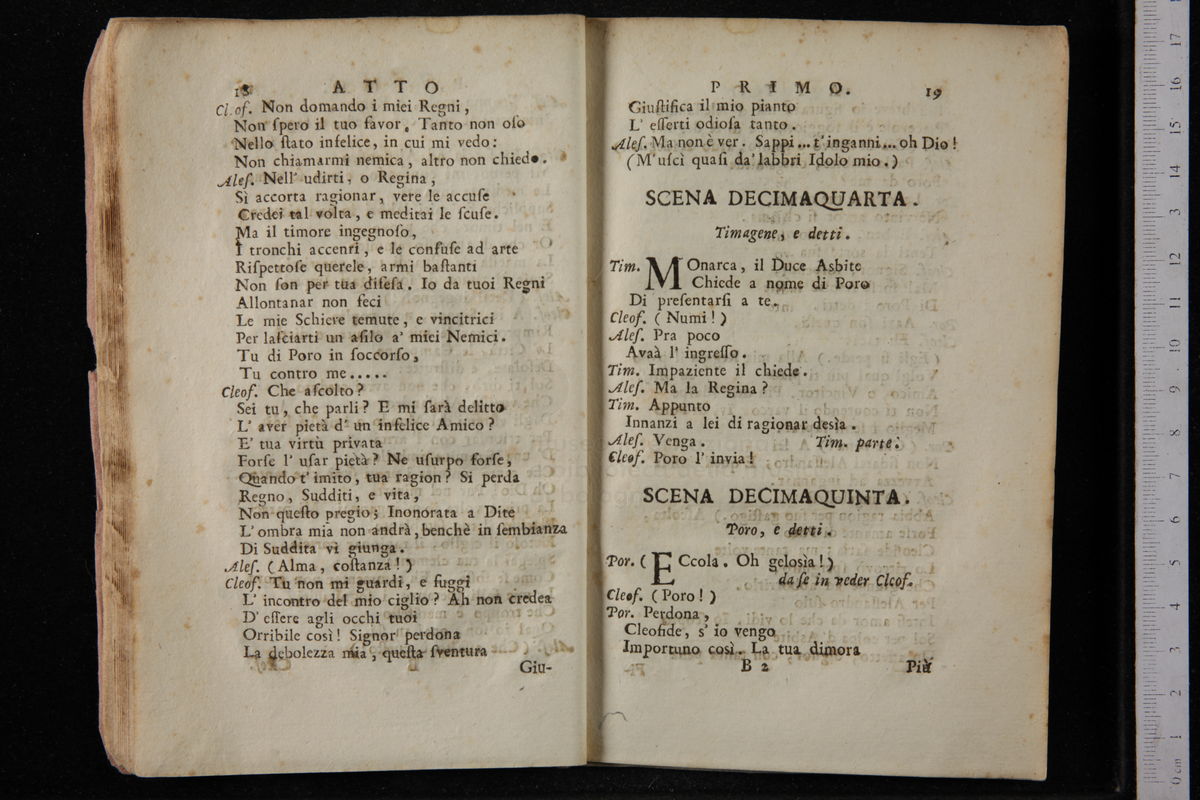 18 ATTO
Cleof. Non domando i miei Regni,
Non ſpero il tuo favor. Tanto non oſo
Nello ſtato infelice, in cui mi vedo:
Non chiamarmi nemica, altro non chiedo.
Aleſ. Nell' udirti, o Regina,
Sì accorta ragionar, vere le accuſe
Credei tal volta, e meditai le ſcuſe.
Ma il timore ingegnoſo,
I tronchi accenti, e le confuſe ad arte
Riſpettoſe querele, armi baſtanti
Non ſon per tua difeſa. Io da tuoi Regni
Allontanar non feci
Le mie Schiere temute, e vincitrici
Per laſciarti un aſilo a' miei Nemici.
Tu di Poro in ſoccorſo,
Tu contro me.....
Cleof. Che aſcolto?
Sei tu, che parli? E mi ſarà delitto
L' aver pietà d' un infelice Amico?
E' tua virtù privata
Forſe l' uſar pietà? Ne uſurpo forſe,
Quando t' imito, tua ragion? Si perda
Regno, Sudditi, e vita,
Non queſto pregio; Inonorata a Dite
L' ombra mia non andrà, benchè in ſembianza
Di Suddita vi giunga.
Aleſ. (Alma, coſtanza!)
Cleof. Tu non mi guardi, e fuggi
L' incontro del mio ciglio? Ah non credea
D' eſſere agli occhi tuoi
Orribile così! Signor perdona
La debolezza mia, queſta ſventura
Giu-
PRIMO. 19
Giuſtifica il mio pianto
L' eſſerti odioſa tanto.
Aleſ. Ma non è ver. Sappi... t'inganni... oh Dio!
(M'uſcì quaſi da' labbri Idolo mio.)
SCENA DECIMAQUARTA.
Timagene, e detti.
Tim. MOnarca, il Duce Asbite
Chiede a nome di Poro
Di preſentarſi a te.
Cleof. (Numi!)
Aleſ. Fra poco
Avaà l' ingreſſo.
Tim. Impaziente il chiede.
Aleſ. Ma la Regina?
Tim. Appunto
Innanzi a lei di ragionar desìa.
Aleſ. Venga. Tim. parte.
Cleof. Poro l' invia!
SCENA DECIMAQUINTA.
Poro, e detti.
Por. (ECcola. Oh gelosìa!)
da ſe in veder Cleof.
Cleof. (Poro!)
Por. Perdona,
Cleofide, s' io vengo
Importuno così. La tua dimora
B 2 Più